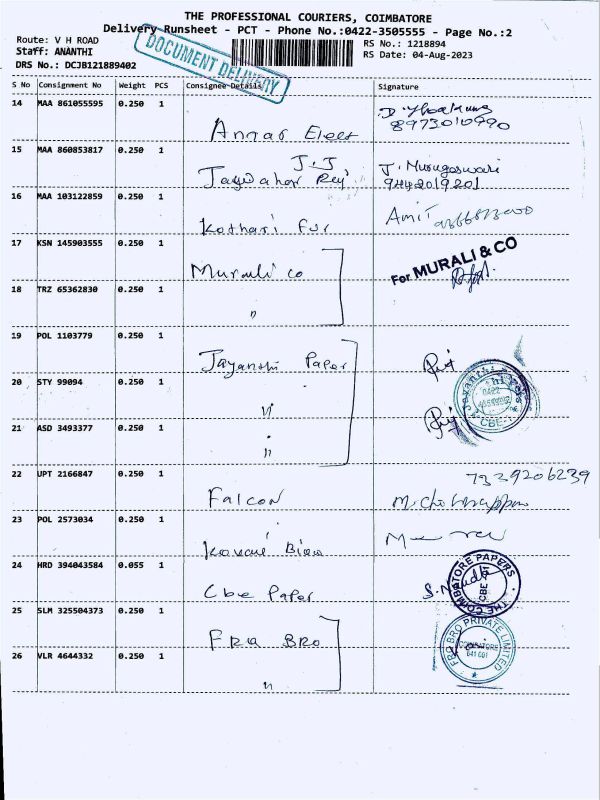 THE PROFESSIONAL COURIERS, COIMBATORE
Delivery Runsheet - PCT - Phone No.:0422-3505555 - Page No.:2
Route: V H ROAD
RS No.: 1218894
Staff: ANANTHI
RS Date: 04-Aug-2023
DRS No.: DCJB121889402
DOCUMENT DELIVERY
S No Consignment No Weight PCS Consignee Details Signature
14 MAA 861055595 0.250 1
8973010990
Annar Elect
15 MAA 860853817 0.250 1
J.J
J. Murugeswari
9442019201
16 MAA 103122859 0.250 1
Amit
Kothari Fur
17 KSN 145903555 0.250 1
Murali co
For MURALI & CO
18 TRZ 65362830 0.250 1
"
19 POL 1103779 0.250 1
Jayanthi Paper
20 STY 99094 0.250 1
"
0422
CBE-1
21 ASD 3493377 0.250 1
"
22 UPT 2166847 0.250 1
7339206239
Falcon
23 POL 2573034 0.250 1
24 HRD 394043584 0.055 1
Cbe Paper
THE COIMBATORE PAPERS
CBE
25 SLM 325504373 0.250 1
FRA BRO
FBG BRO PRIVATE LIMITED
COIMBATORE
641 001
26 VLR 4644332 0.250 1
"